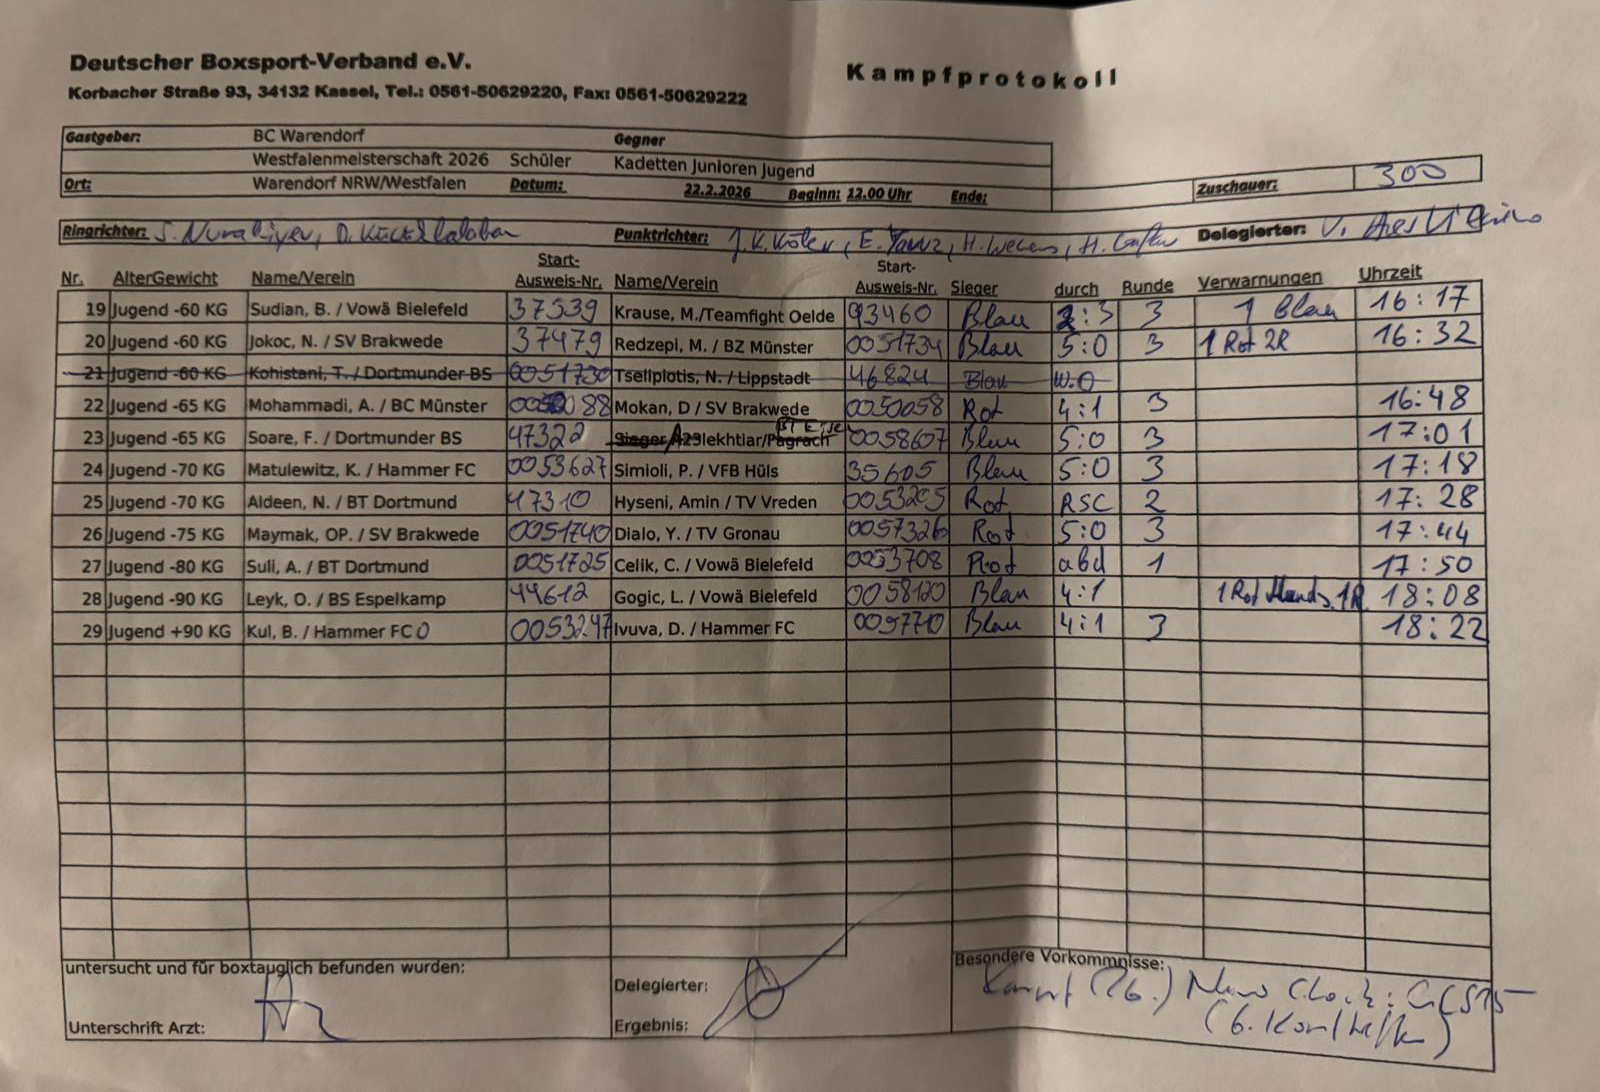 Deutscher Boxsport-Verband e.V.
Kampfprotokoll
Korbacher Straße 93, 34132 Kassel, Tel.: 0561-50629220, Fax: 0561-50629222
Gastgeber: BC Warendorf Gegner
Westfalenmeisterschaft 2026 Schüler Kadetten Junioren Jugend
Ort: Warendorf NRW/Westfalen Datum: 22.2.2026 Beginn: 12.00 Uhr Ende: Zuschauer: 300
Ringrichter: Punktrichter: Delegierter:
Nr. AlterGewicht Name/Verein Start-Ausweis-Nr. Name/Verein Start-Ausweis-Nr. Sieger durch Runde Verwarnungen Uhrzeit
19 Jugend -60 KG Sudian, B. / Vowä Bielefeld 37539 Krause, M./Teamfight Oelde 93460 Blau 2:3 3 1 Blau 16:17
20 Jugend -60 KG Jokoc, N. / SV Brakwede 37479 Redzepi, M. / BZ Münster 0051734 Blau 5:0 3 1 Rot 2R 16:32
21 Jugend -60 KG Kohistani, T. / Dortmunder BS 0051730 Tsellplotis, N. / Lippstadt 46824 Blau W.O
22 Jugend -65 KG Mohammadi, A. / BC Münster Mokan, D / SV Brakwede 0050058 Rot 4:1 3 16:48
23 Jugend -65 KG Soare, F. / Dortmunder BS 47322 0058607 Blau 5:0 3 17:01
24 Jugend -70 KG Matulewitz, K. / Hammer FC 0053627 Simioli, P. / VFB Hüls 35605 Blau 5:0 3 17:18
25 Jugend -70 KG Aldeen, N. / BT Dortmund 47310 Hyseni, Amin / TV Vreden 0053205 Rot RSC 2 17:28
26 Jugend -75 KG Maymak, OP. / SV Brakwede 0051740 Dialo, Y. / TV Gronau 0057326 Rot 5:0 3 17:44
27 Jugend -80 KG Suli, A. / BT Dortmund 0051725 Celik, C. / Vowä Bielefeld 0053708 Rot abd 1 17:50
28 Jugend -90 KG Leyk, O. / BS Espelkamp 44612 Gogic, L. / Vowä Bielefeld 0058120 Blau 4:1 1 Rot 1R 18:08
29 Jugend +90 KG Kul, B. / Hammer FC 0053247 Ivuva, D. / Hammer FC 0057710 Blau 4:1 3 18:22
untersucht und für boxtauglich befunden wurden:
Besondere Vorkommnisse:
Delegierter:
Unterschrift Arzt:
Ergebnis: